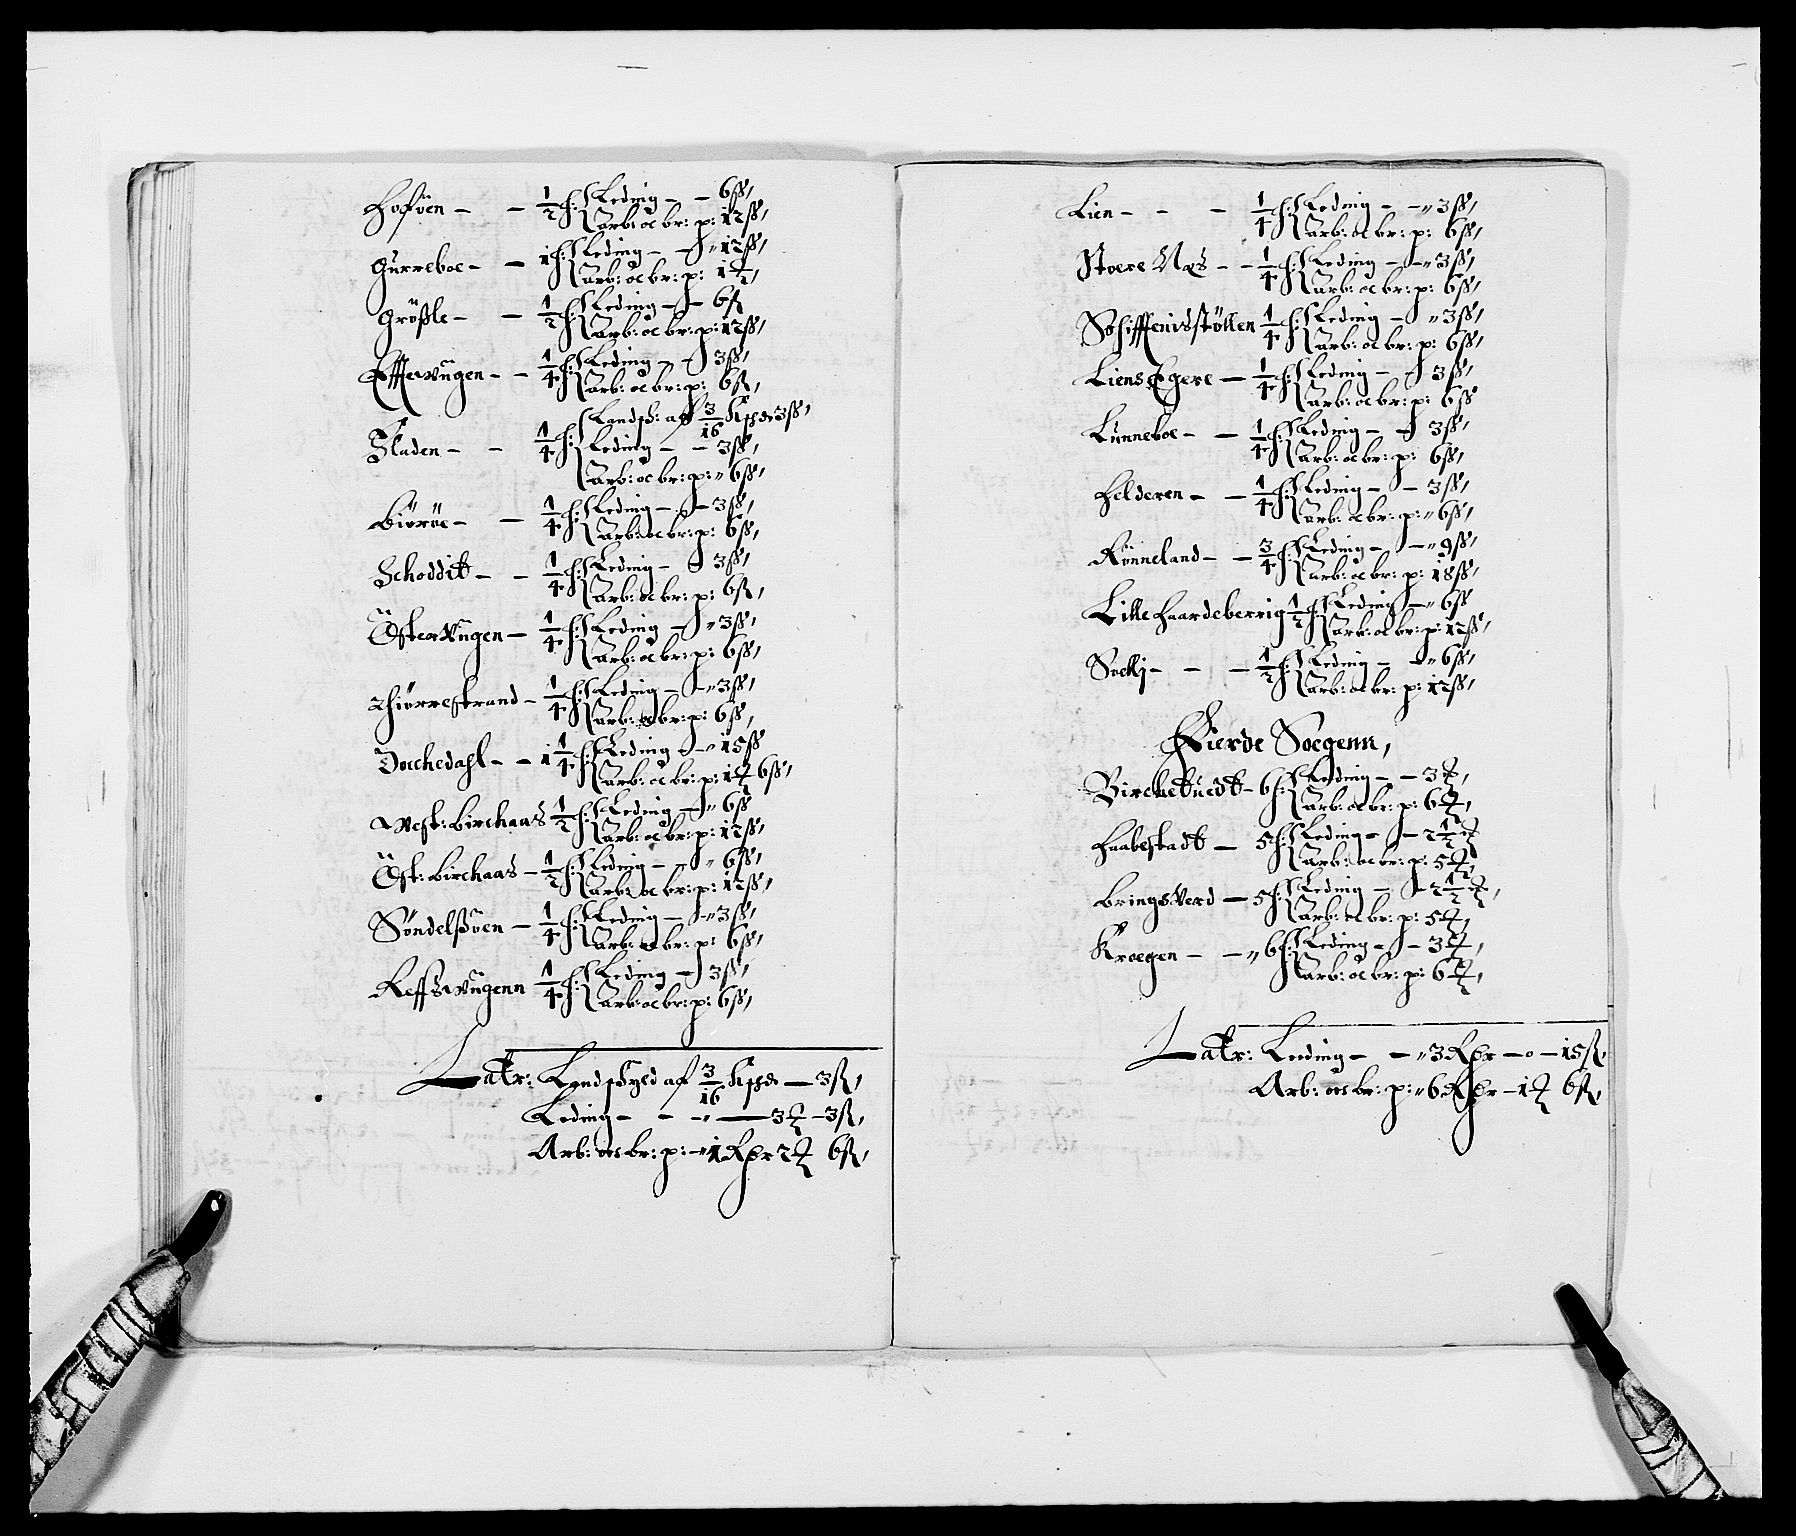 Hofven - - 1/2 h: Leding - - 6 ß,
Arb: oc br: p: 12 ß,
Gurreboe - - 1 h: Leding - - 12 ß,
Arb: oc br: p: 1 ƶ,
Größle - - 1/2 h: Leding - - 6 ß
Arb: oc br: p: 12 ß,
Efftervügen - - 1/4 h: Leding - - 3 ß,
Arb: oc br: p: 6 ß,
Sladen - - 1/4 h: Landsk: aff 3/16 hßde 3 ß,
Leding - - 3 ß,
Arb: oc br: p: 6 ß,
Biöröe - - 1/4 h: Leding - - 3 ß,
Arb: oc br: p: 6 ß,
Schoddit - - 1/4 h: Leding - - 3 ß,
Arb: oc br: p: 6 ß,
Östervügen - 1/4 h: Leding - - 3 ß,
Arb: oc br: p: 6 ß,
Thiörrestrand - 1/4 h: Leding - - 3 ß,
Arb: oc br: p: 6 ß,
Dochedahl - - 1 1/4 h: Leding - - 15 ß
Arb: oc br: p: 1 ƶ 6 ß,
West: Birchaas 1/2 h: Leding - - 6 ß
Arb: oc br: p: 12 ß,
Öst: Birchaas - 1/2 h: Leding - - 6 ß,
Arb: oc br: p: 12 ß,
Söndelßöen - 1/4 h: Leding - - 3 ß,
Arb: oc br: p: 6 ß,
Reffsvügenn 1/4 h: Leding - 3 ß,
Arb: oc br: p: 6 ß,
Latr: Landskyld aff 3/16 hßde - 3 ß,
Leding - - - 3 ƶ - 3 ß,
Arb: oc br: p: - 1 Rdr 2 ƶ 6 ß,
Lien - - - 1/4 h: Leding - - 3 ß,
Arb: oc br: p: 6 ß,
Stoere Næs - - 1/4 h: Leding - - 3 ß,
Arb: oc br: p: 6 ß,
Schiffenisstöllen 1/4 h: Leding - - 3 ß,
Arb: oc br: p: 6 ß,
Liens Egere - 1/4 h: Leding - - 3 ß,
Arb: oc br: p: 6 ß
Lunneboe - - 1/4 h: Leding - - 3 ß,
Arb: oc br: p: 6 ß,
Helderen - - 1/4 h: Leding - - 3 ß,
Arb: oc br: p: 6 ß,
Rönneland - - 3/4 h: Leding - - 9 ß,
Arb: oc br: p: 18 ß,
Lille Haardeberrig 1/2 h: Leding - 6 ß
Arb: oc br: p: 12 ß,
Sockj - - - 1/2 h: Leding - - 6 ß,
Arb: oc br: p: 12 ß,
Gierde Soegenn,
Birchetuedt - 6 h: Leding - - 3 ƶ,
Arb: oc br: p: 6 ƶ,
Haabestadt - 5 h: Leding - - 2 1/2 ƶ
Arb: oc br: p: 5 ƶ,
Bringsverd - 5 h: Leding - - 2 1/2 ƶ,
Arb: oc br: p: 5 ƶ,
Kroegen - - 6 h: Leding - - 3 ƶ,
Arb: oc br: p: 6 ƶ,
Latr: Leding - - 3 Rdr - o - 15 ß,
Arb: oc br: p: 6 Rdr - 1 ƶ 6 ß,